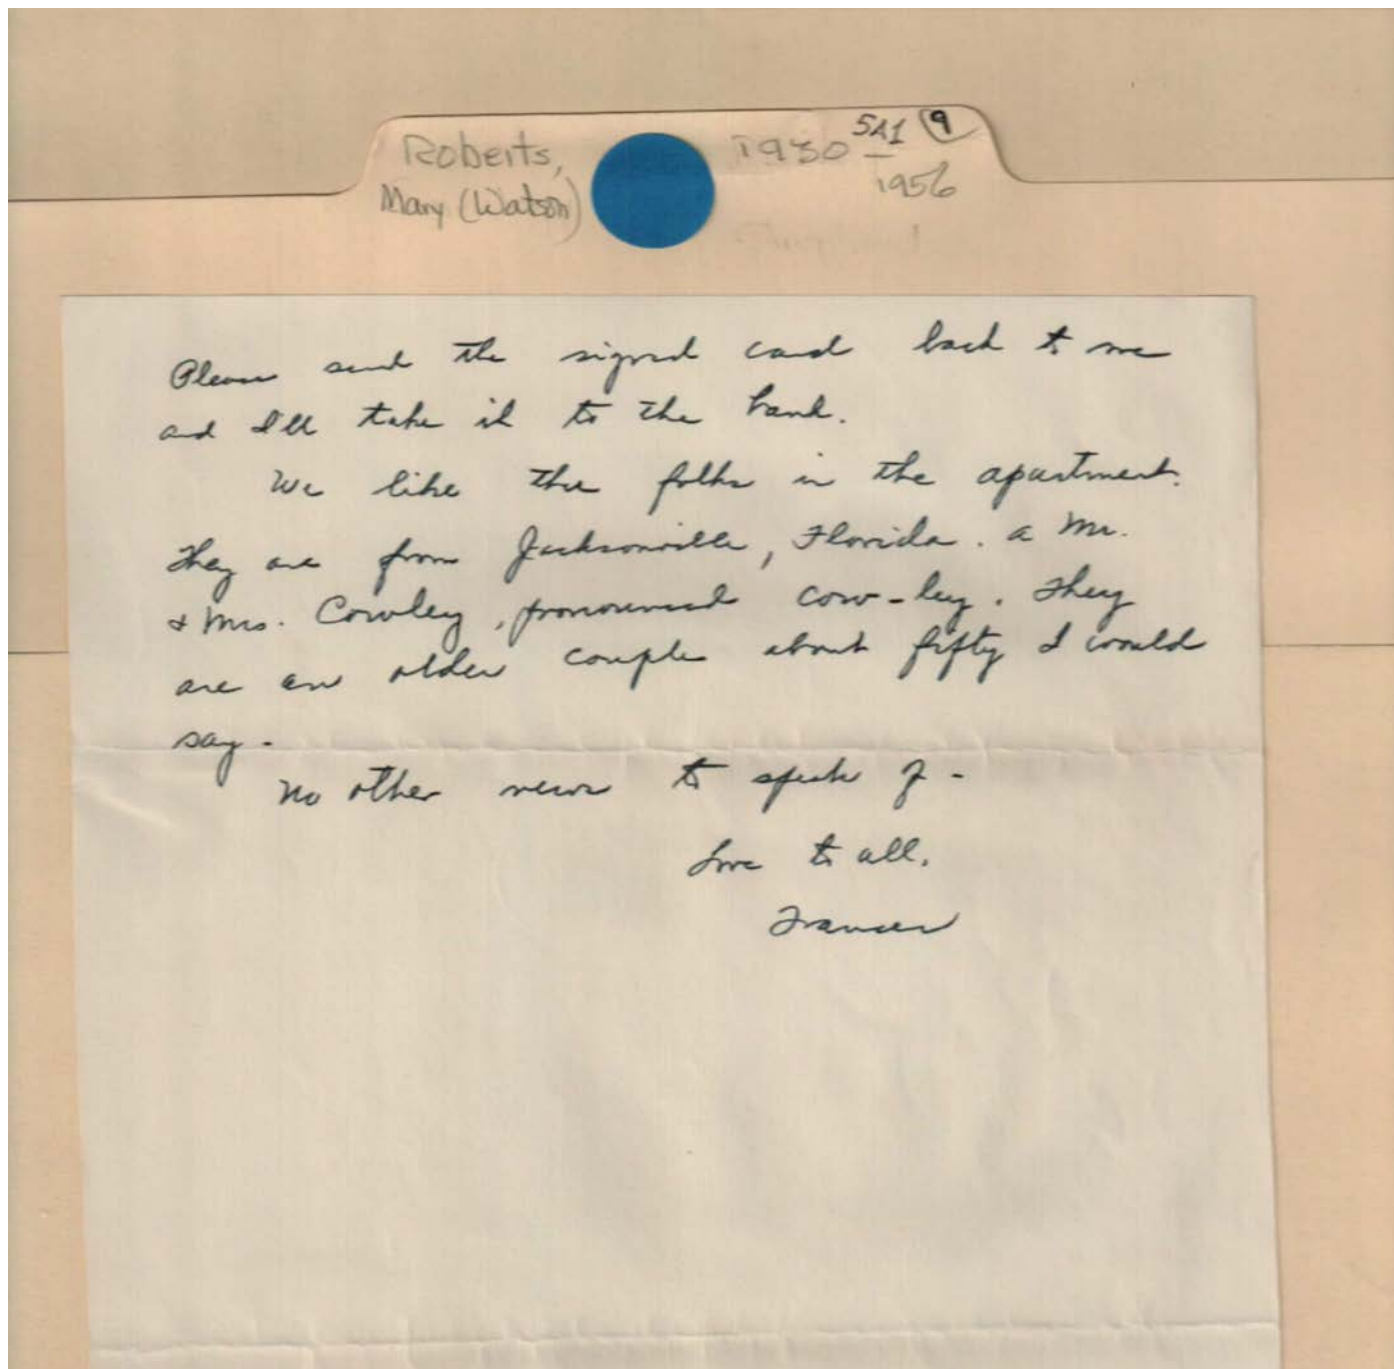 Roberts, 1930 5A1 9
Mary (Watson) 1956
Please send the signed card back to me
and I'll take it to the bank.
We like the folks in the apartment.
They are from Jacksonville, Florida. a Mr.
& Mrs. Cowley, pronounced cow-ley. They
are an older couple about fifty I would
say -
No other news to speak of -
Love to all.
Frances